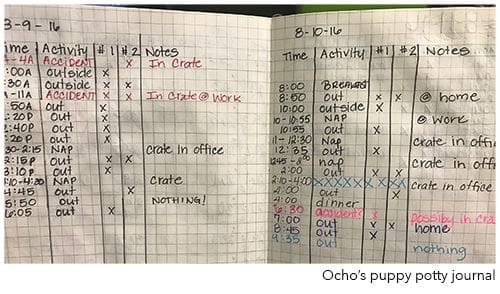 3-9-16
ime Activity #1 #2 Notes
-4A ACCIDENT x In Crate
:00A outside x
outside x
-11A ACCIDENT x x In Crate @ Work
:50A out x
:20P out x
:40P out x
:20P out x
30-2:15 NAP crate in office
2:15P out x x
3:10P out x
:10-4:30 NAP Crate
4:45 out x
5:50 out NOTHING!
6:05 out x
8-10-16
Time Activity #1 #2 Notes
8:00 BREAKFAST
8:50 out x x @ home
10:00 outside x
10-10:55 NAP @ work
10:55 out x
11-12:30 Nap crate in offi
12:35 out x
12:45- nap crate in offi
2:00 out x x
2:10-4:00 XXXXXXXXXX crate in office
4:00 out x
4:00 dinner
6:30 accident! x possibly in cra
7:00 out x x home
8:45 out x
9:35 out nothing
Ocho's puppy potty journal